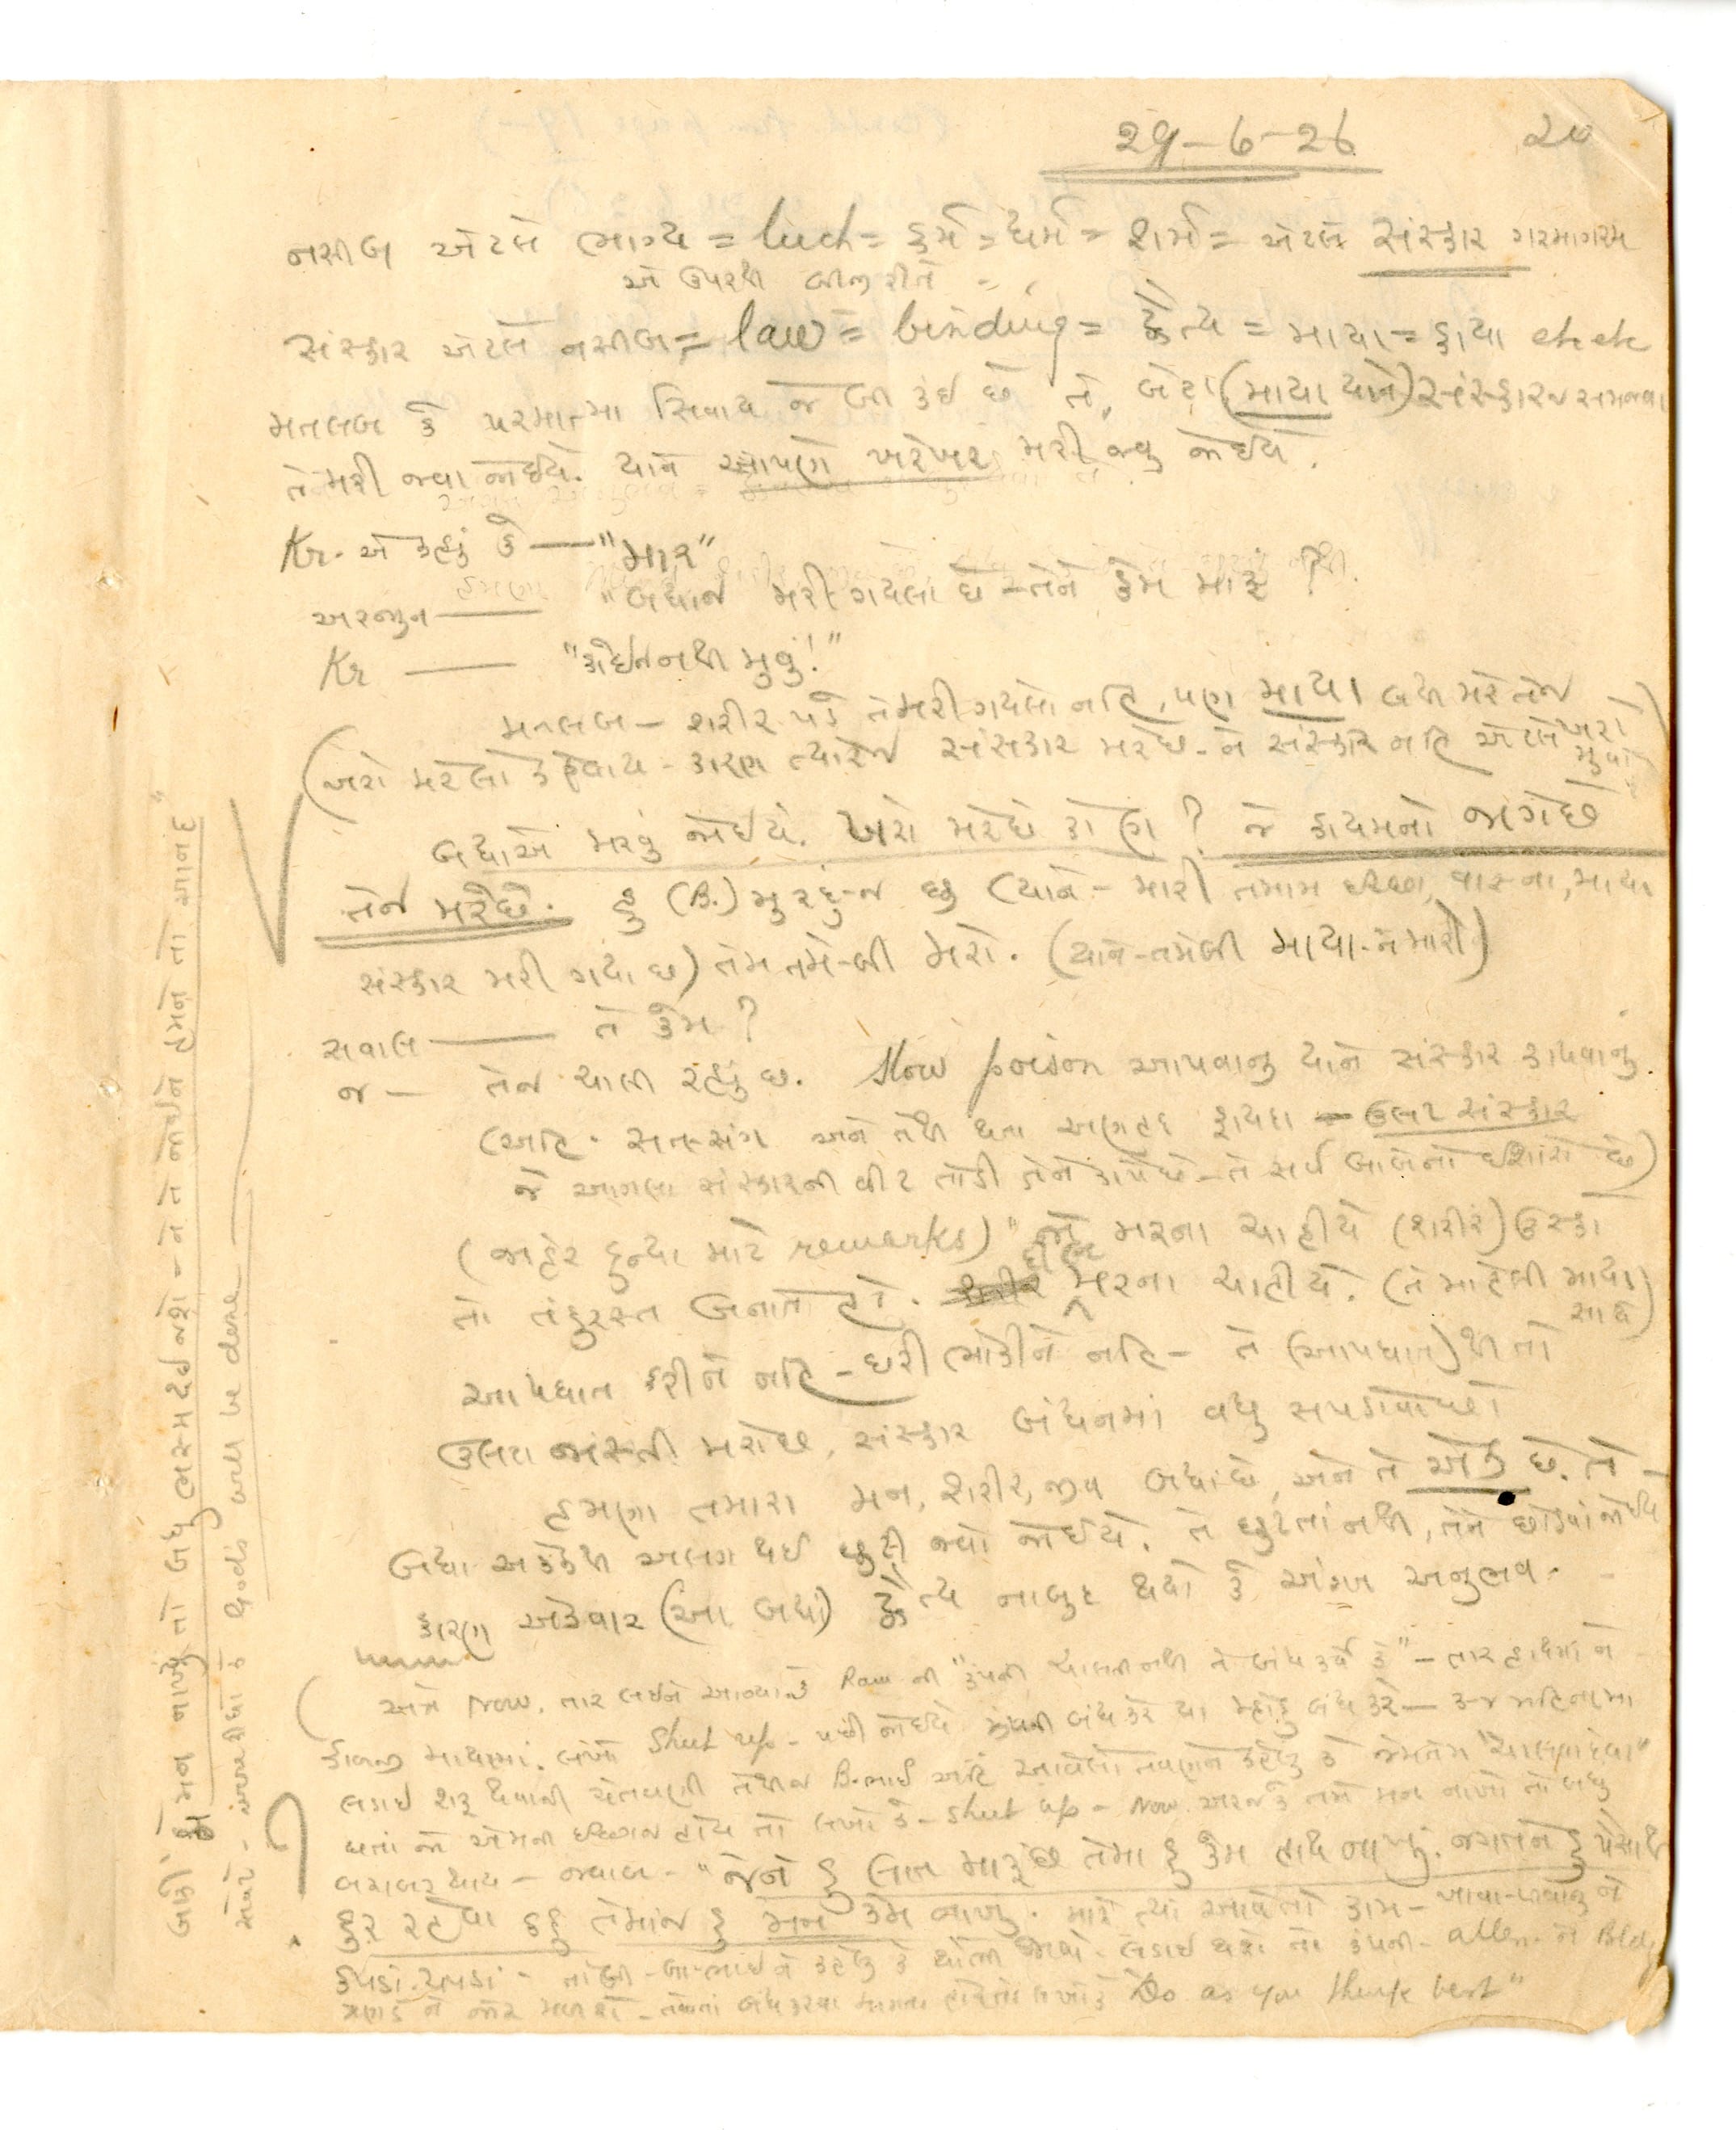 29-6-26
નસીબ એટલે ભાગ્ય = luck = કર્મ = ધર્મ = શર્મ = એટલે સંસ્કાર ગરમાગરમ
એ ઉપરથી બીજી રીતે =
સંસ્કાર એટલે નસીબ = law = binding = દ્વૈત્ય = માયા = કાયા etc etc
મતલબ કે પરમાત્મા સિવાય જે બી કંઇ છે તે, (માયા યાને) સંસ્કારજ સમજવા
તે મરી જવા જોઈયે. યાને આપણે ખરેખર મરી જવુ જોઈયે.
Kr. એ કહ્યું કે — "માર"
અરજુન — "બધાજ મરી ગયેલા છે - તેને કેમ મારૂં ?
Kr — "કોઈજ નથી મુવું!"
મતલબ - શરીર પડે તે મરી ગયેલો નહિ, પણ માયા બધી મરે તેજ
(ખરો મરેલો કહેવાય - કારણ ત્યારેજ સંસકાર મરે છે - ને સંસ્કાર નહિ એટલે ખરો
મુવો)
બધાએ મરવું જોઈયે. ખરો મરે છે કોણ ? જે કાયમનો જાગે છે
તેજ મરે છે. હું (B.) મુરદું-જ છુ (યાને - મારી તમામ ઇચ્છા, વાસના, માયા
સંસ્કાર મરી ગયા છે) તેમ તમે-બી મરો. (યાને - તમેબી માયા-ને મારો)
સવાલ — તે કેમ ?
જ — તેજ ચાલી રહ્યું છે. Slow poison આપવાનુ યાને સંસ્કાર કાપવાનું.
(અહિ. સત-સંગ અને તેથી થતા અણહદ ફાયદા — ઉલટ સંસ્કાર
જે આગલા સંસ્કારની વીટ તોડી તેને કાપે છે - તે સર્વ બાબેનો ઈશારો છે)
(જાહેર દુન્યા માટે remarks) "જો મરના ચાહીયે (શરીર) ઉસ્કો
તો તંદુરસ્ત બનાતે હો. મરના ચાહીયે. (તે માહેલી માયા
સાથે)
આપઘાત કરીને નહિ - છરી ભોકીને નહિ - તે (આપઘાત) થી તો
ઉલટા જાસ્તી મરો છો, સંસ્કાર બંધનમાં વધુ સપડાવો છો
હમણા તમારા મન, શરીર, જીવ બધા છે, અને તે એક છે. તે
બધા એકેકથી અલગ થઈ છુટી જવો જોઈયે. તે છુટતાં નથી, તેને છોડવાં જોઈયે
કારણ એકવાર (આ બધાં) દ્વૈત્ય નાબુદ થયો કે અંગ્ય અનુભવ.
(
અને Now. તાર લઈને આવ્યા કે Raw ની "કંપની ચાલતી નથી તે બંધ કરે કે" - તાર હાથમાં ને
માથામાં. લખો Shut up - પછી જોઈયે કંપની બંધ કરે યા મ્હોડુ બંધ કરે — ૩-૪ મહિનામા
લડાઇ શરૂ થવાની ચેતવણી તેથીજ B.ભાઈ અહિ આવેલો કહેલુ કે જેમતેમ "ચાલવા દેવા"
છતાં જો એમની ઇચ્છાજ હોય તો લખો કે - Shut up - Now અરજ કે તમે મન નાખો તો બધુ
બરાબર થાય - જવાબ - "જેને હું લાત મારૂં છું તેમા હું કેમ હાથ નાખું. જગતને હું પૈસાથી
દુર રહેવા કહું તેમાંજ હું મન કેમ નાખુ. મારે ત્યાં આવે તો કામ - ખાવા-પીવાનુ ને
કપડાં-ચપડાં - તોબી - બા-ભાઈને કહેલું કે થોભી જાવો - લડાઇ થશે તો કંપની - ને Bldg
ને જોર મળશે - બંધ કરવા માગતા હોય તો લખો કે "Do as you think best"
બાકી હું મન નાખું તો બધુ ભસ્મ થઇ જશે - ને તે જોઇને હમને તો આનંદ"
માટે - કે God's will be done